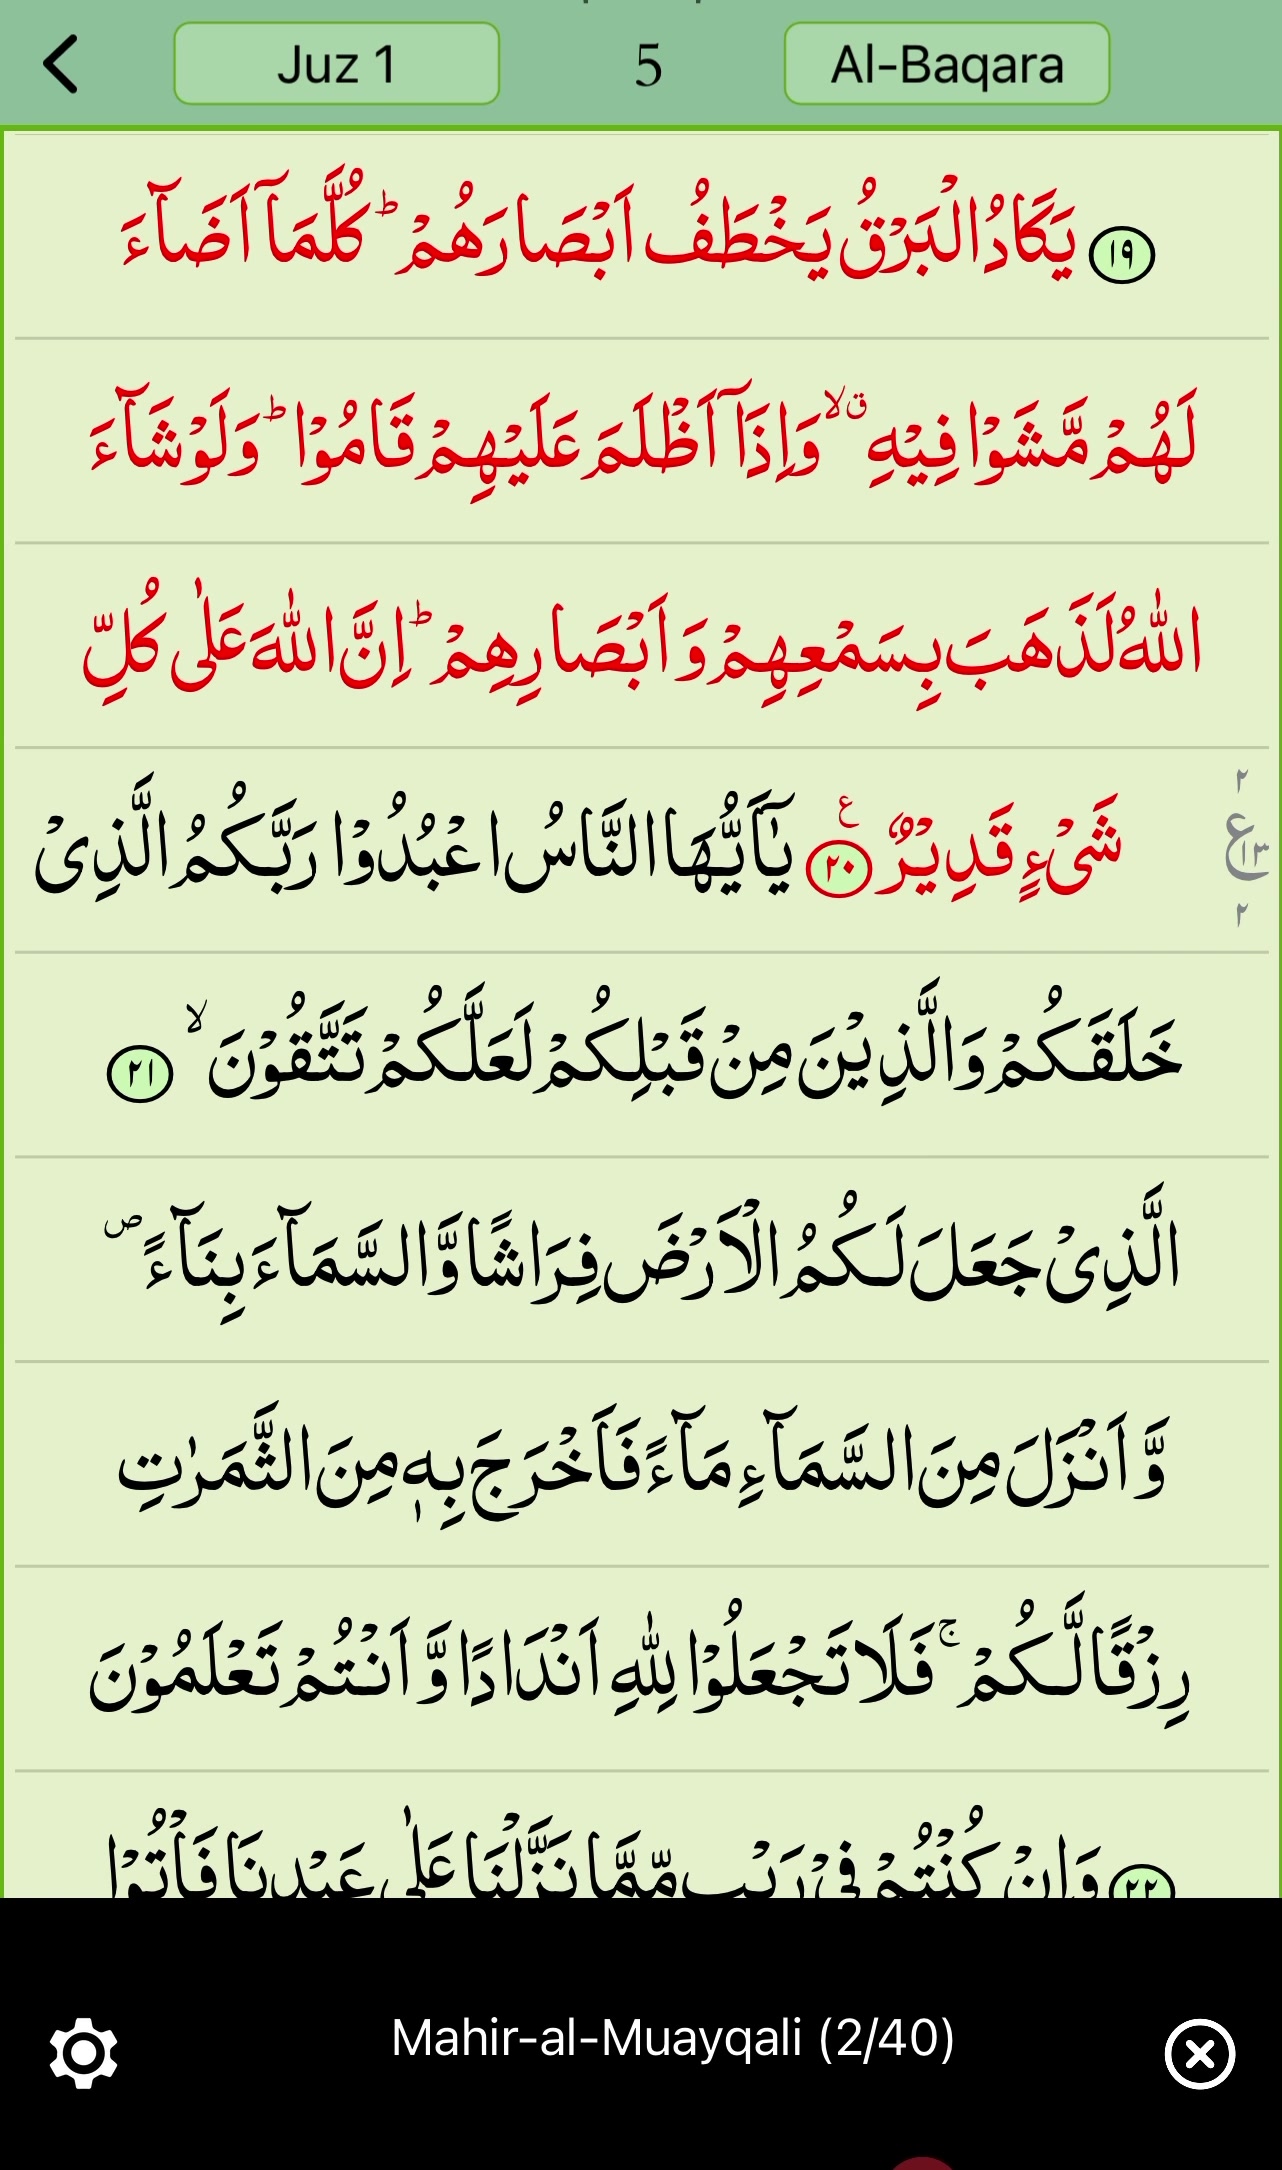 Juz 1 5 Al-Baqara
۱۹ يَكَادُ الْبَرْقُ يَخْطَفُ اَبْصَارَهُمْ ؕ كُلَّمَاۤ اَضَآءَ
لَهُمْ مَّشَوْا فِيْهِ ۙق وَاِذَاۤ اَظْلَمَ عَلَيْهِمْ قَامُوْا ؕ وَلَوْ شَآءَ
اللّٰهُ لَذَهَبَ بِسَمْعِهِمْ وَ اَبْصَارِهِمْ ؕ اِنَّ اللّٰهَ عَلٰى كُلِّ
شَىْءٍ قَدِيْرٌ ۲۰ ع يٰۤاَيُّهَا النَّاسُ اعْبُدُوْا رَبَّكُمُ الَّذِىْ
۲ ع ۱۳ ۲
خَلَقَكُمْ وَالَّذِيْنَ مِنْ قَبْلِكُمْ لَعَلَّكُمْ تَتَّقُوْنَ ۙ ۲۱
الَّذِىْ جَعَلَ لَـكُمُ الْاَرْضَ فِرَاشًا وَّالسَّمَآءَ بِنَآءً ص
وَّاَنْزَلَ مِنَ السَّمَآءِ مَآءً فَاَخْرَجَ بِهٖ مِنَ الثَّمَرٰتِ
رِزْقًا لَّـكُمْ ۚ فَلَا تَجْعَلُوْا لِلّٰهِ اَنْدَادًا وَّ اَنْـتُمْ تَعْلَمُوْنَ
۲۲ وَاِنْ کُنْتُمْ فِىْ رَيْبٍ مِّمَّا نَزَّلْنَا عَلٰى عَبْدِنَا فَاْتُوْا
Mahir-al-Muayqali (2/40)